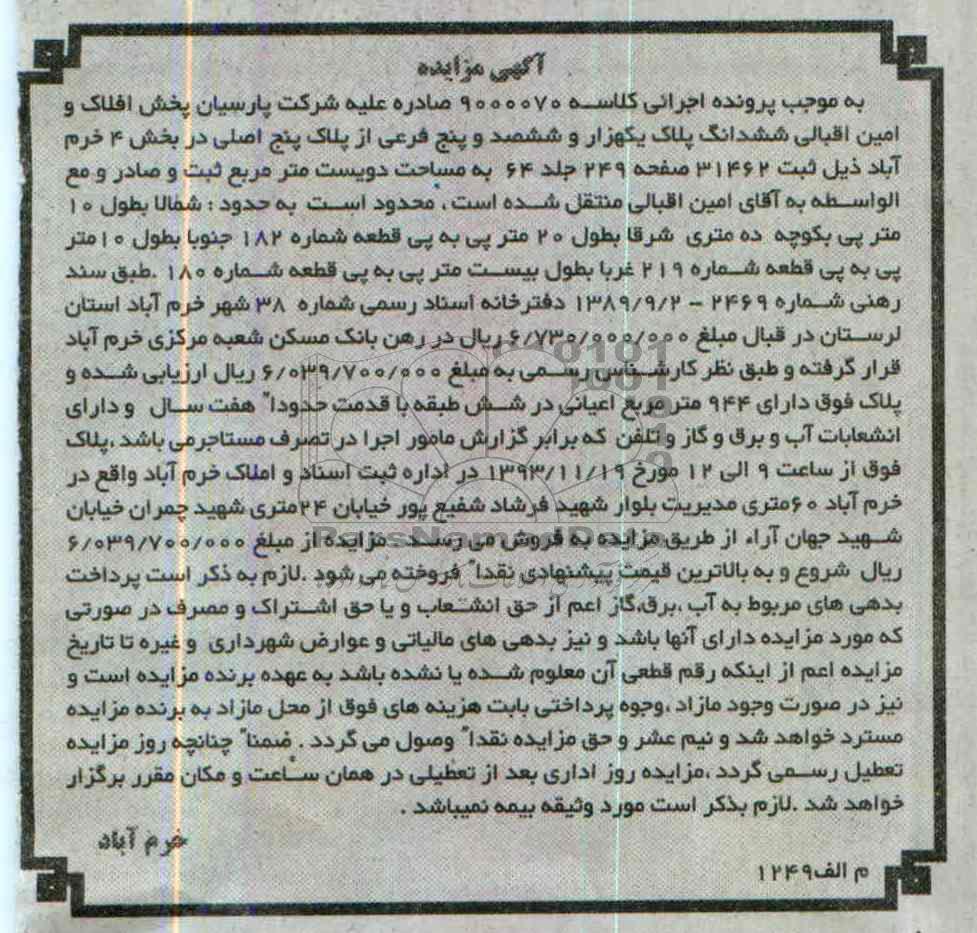 آگهی مزایده
به موجب پرونده اجرائی کلاسه ۹۰۰۰۰۷۰ صادره علیه شرکت پارسیان پخش افلاک و
امین اقبالی ششدانگ پلاک یکهزار و ششصد و پنج فرعی از پلاک پنج اصلی در بخش ۴ خرم
آباد ذیل ثبت ۳۱۴۶۲ صفحه ۲۴۹ جلد ۶۴ به مساحت دویست متر مربع ثبت و صادر و مع
الواسطه به آقای امین اقبالی منتقل شده است ، محدود است به حدود : شمالا بطول ۱۰
متر پی بکوچه ده متری شرقا بطول ۲۰ متر پی به پی قطعه شماره ۱۸۲ جنوبا بطول ۱۰متر
پی به پی قطعه شماره ۲۱۹ غربا بطول بیست متر پی به پی قطعه شماره ۱۸۰ .طبق سند
رهنی شماره ۲۴۶۹ – ۱۳۸۹/۹/۲ دفترخانه اسناد رسمی شماره ۳۸ شهر خرم آباد استان
لرستان در قبال مبلغ ۶/۷۳۰/۰۰۰/۰۰۰ ریال در رهن بانک مسکن شعبه مرکزی خرم آباد
قرار گرفته و طبق نظر کارشناس رسمی به مبلغ ۶/۰۳۹/۷۰۰/۰۰۰ ریال ارزیابی شده و
پلاک فوق دارای ۹۴۴ متر مربع اعیانی در شش طبقه با قدمت حدوداً هفت سال و دارای
انشعابات آب و برق و گاز و تلفن که برابر گزارش مامور اجرا در تصرف مستاجر می باشد ،پلاک
فوق از ساعت ۹ الی ۱۲ مورخ ۱۳۹۳/۱۱/۱۹ در اداره ثبت اسناد و املاک خرم آباد واقع در
خرم آباد ۶۰متری مدیریت بلوار شهید فرشاد شفیع پور خیابان ۲۴متری شهید چمران خیابان
شهید جهان آراء از طریق مزایده به فروش می رسد . مزایده از مبلغ ۶/۰۳۹/۷۰۰/۰۰۰
ریال شروع و به بالاترین قیمت پیشنهادی نقداً فروخته می شود .لازم به ذکر است پرداخت
بدهی های مربوط به آب ،برق،گاز اعم از حق انشعاب و یا حق اشتراک و مصرف در صورتی
که مورد مزایده دارای آنها باشد و نیز بدهی های مالیاتی و عوارض شهرداری و غیره تا تاریخ
مزایده اعم از اینکه رقم قطعی آن معلوم شده یا نشده باشد به عهده برنده مزایده است و
نیز در صورت وجود مازاد ،وجوه پرداختی بابت هزینه های فوق از محل مازاد به برنده مزایده
مسترد خواهد شد و نیم عشر و حق مزایده نقداً وصول می گردد . ضمناً چنانچه روز مزایده
تعطیل رسمی گردد ،مزایده روز اداری بعد از تعطیلی در همان ساعت و مکان مقرر برگزار
خواهد شد .لازم بذکر است مورد وثیقه بیمه نمیباشد .
خرم آباد
م الف۱۲۴۹